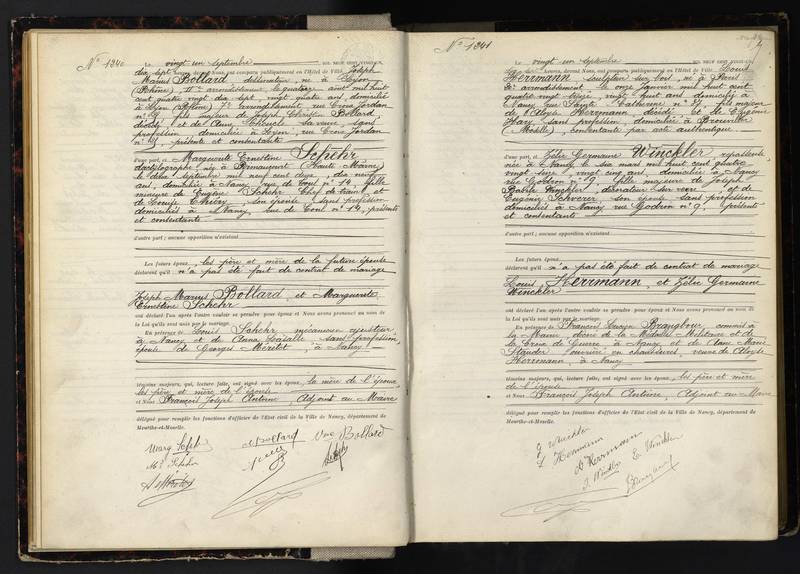 N° 1340
Le vingt un septembre mil neuf cent vingt un,
dix sept heures, devant Nous, ont comparu publiquement en l'Hôtel de Ville, Joseph
Marius Bollard, dessinateur, né à Lyon
(Rhône) arrondissement, le quatorze août mil huit
cent quatre vingt dix sept, vingt quatre ans, domicilié
à Lyon (Rhône) arrondissement, rue Croix Jordan
n° 9, fils majeur de Joseph Christin Bollard,
décédé, et de Anne sa veuve sans
profession, domiciliée à Lyon, rue Croix Jordan
n° 9, présente et consentante
d'une part, et Marguerite Ernestine Schehr
dactylographe, née à (Haute Marne)
le deux septembre mil neuf cent deux, dix neuf
ans, domiciliée à Nancy, rue de Toul n° 14, fille
mineure de Eugène Schehr Chef de train, et
de Louise Thiéry, son épouse, sans profession
domiciliés à Nancy, rue de Toul n° 14, présents
et consentants
d'autre part ; aucune opposition n'existant
Les futurs époux, les père et mère de la future épouse
déclarent qu'il n'a pas été fait de contrat de mariage
Joseph Marius Bollard, et Marguerite
Ernestine Schehr
ont déclaré l'un après l'autre vouloir se prendre pour époux et Nous avons prononcé au nom de
la Loi qu'ils sont unis par le mariage.
En présence de Louis Schehr mécanicien ajusteur,
à Nancy et de Anna Lasalle sans profession,
épouse de Georges, à Nancy
témoins majeurs, qui, lecture faite, ont signé avec les époux, la mère de l'époux
les père et mère de l'épouse
et Nous François Joseph Antoine, Adjoint au Maire
délégué pour remplir les fonctions d'officier de l'État civil de la Ville de Nancy, département de
Meurthe-et-Moselle.
Marg. Schehr
Bollard
Vve Bollard
Schehr
N° 1341
Le vingt un septembre mil neuf cent vingt un,
heures, devant Nous, ont comparu publiquement en l'Hôtel de Ville, Louis
Herrmann sculpteur sur bois, né à Paris
arrondissement, le onze janvier mil huit cent
quatre vingt treize, vingt huit ans, domicilié à
Nancy rue Sainte Catherine n°, fils majeur
de Aloyse Herrmann, décédé et de Eugénie
sans profession, domiciliée à
(Moselle), consentante par acte authentique.
d'une part, et Zélie Germaine Winckler, repasseuse
née à Nancy, le six mars mil huit cent quatre
vingt seize, vingt cinq ans, domiciliée à Nancy
rue Godron n° 9, fille majeure de Joseph
Winckler décorateur sur verre, et de
Eugénie Schverer, son épouse, sans profession
domiciliés à Nancy rue Godron n° 9, présents
et consentants
d'autre part ; aucune opposition n'existant
Les futurs époux
déclarent qu'il n'a pas été fait de contrat de mariage
Louis Herrmann, et Zélie Germaine
Winckler
ont déclaré l'un après l'autre vouloir se prendre pour époux et Nous avons prononcé au nom de
la Loi qu'ils sont unis par le mariage.
En présence de François commis à
la Mairie, décoré de la Médaille Militaire et de
la Croix de Guerre, à Nancy, et de Anne Marie
ouvrière en chaussures, veuve de Aloyse
Herrmann, à Nancy
témoins majeurs, qui, lecture faite, ont signé avec les époux, les père et mère
de l'épouse
et Nous François Joseph Antoine, Adjoint au Maire
délégué pour remplir les fonctions d'officier de l'État civil de la Ville de Nancy, département de
Meurthe-et-Moselle.
Winckler
L Herrmann
Herrmann
J. Winckler
E. Winckler